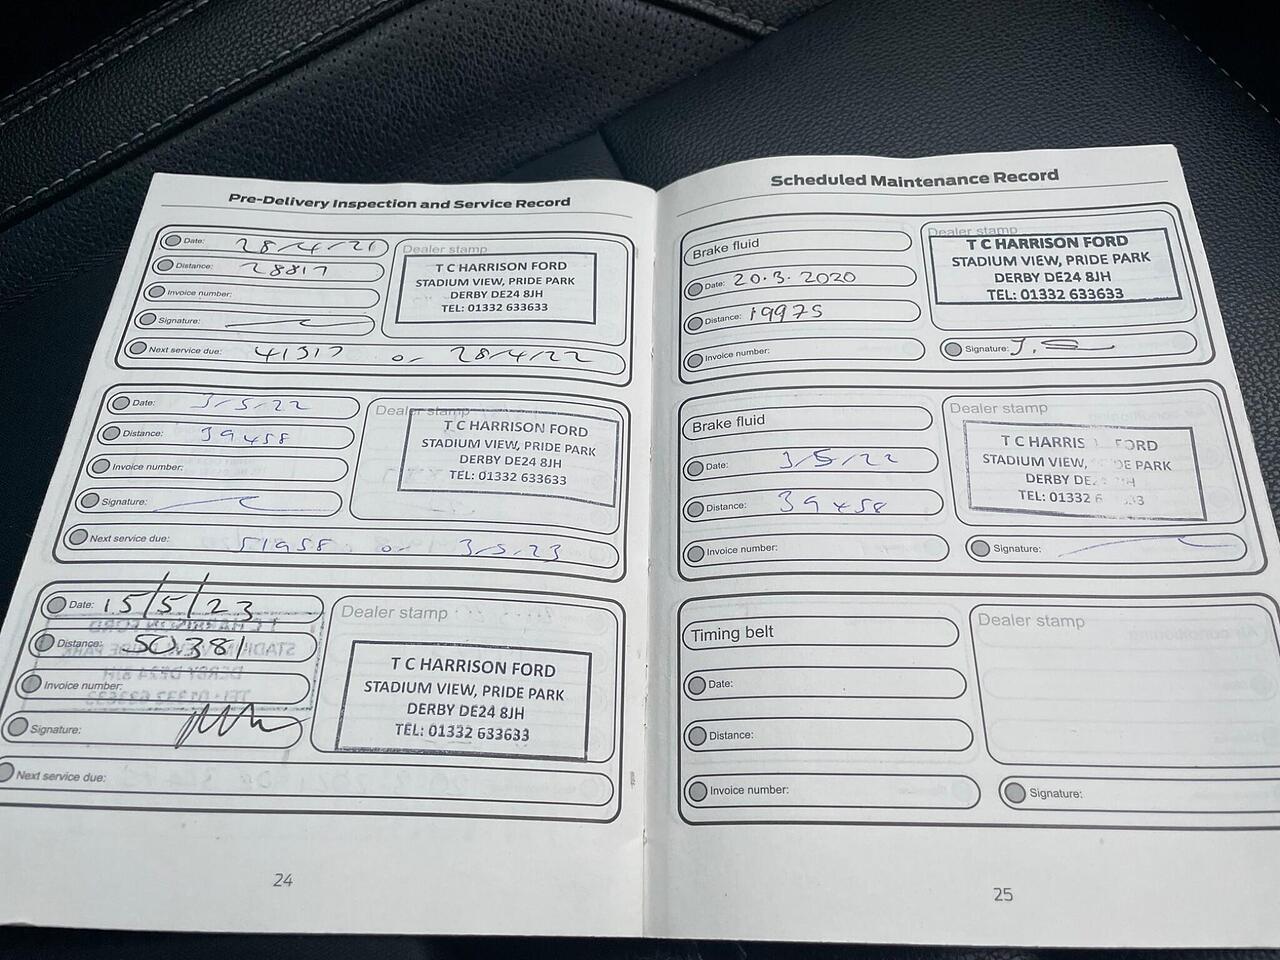 Pre-Delivery Inspection and Service Record
Date: 28/4/21
Distance: 28817
Invoice number:
Signature:
Dealer stamp
T C HARRISON FORD
STADIUM VIEW, PRIDE PARK
DERBY DE24 8JH
TEL: 01332 633633
Next service due: 41317 or 28/4/22
Date: 3/5/22
Distance: 39458
Invoice number:
Signature:
Dealer stamp
T C HARRISON FORD
STADIUM VIEW, PRIDE PARK
DERBY DE24 8JH
TEL: 01332 633633
Next service due: 51958 or 3/5/23
Date: 15/5/23
Distance: 50381
Invoice number:
Signature:
Dealer stamp
T C HARRISON FORD
STADIUM VIEW, PRIDE PARK
DERBY DE24 8JH
TEL: 01332 633633
Next service due:
24
Scheduled Maintenance Record
Brake fluid
Date: 20.3.2020
Distance: 19975
Invoice number:
Dealer stamp
T C HARRISON FORD
STADIUM VIEW, PRIDE PARK
DERBY DE24 8JH
TEL: 01332 633633
Signature:
Brake fluid
Date: 3/5/22
Distance: 39458
Invoice number:
Dealer stamp
T C HARRIS FORD
STADIUM VIEW, DE PARK
DERBY DE
TEL: 01332 6 33
Signature:
Timing belt
Date:
Distance:
Invoice number:
Dealer stamp
Signature:
25